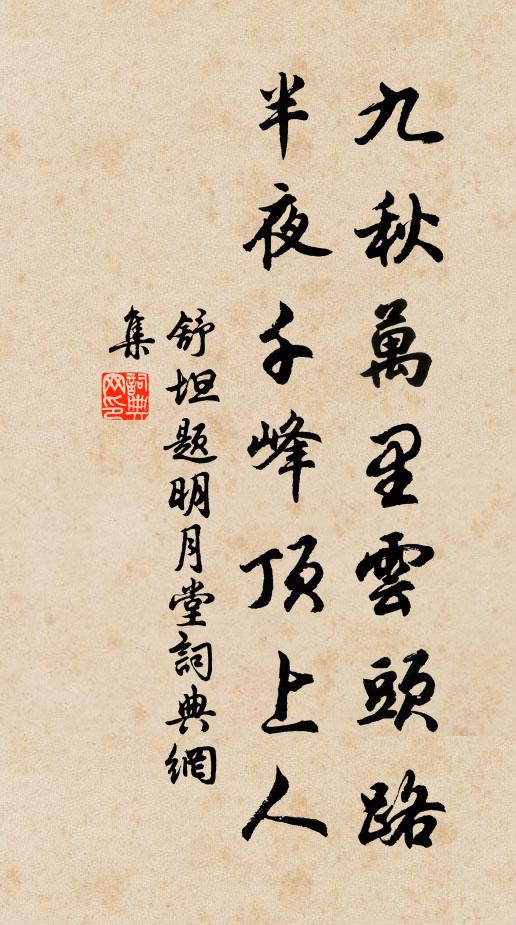 九秋萬里雲頭路
半夜千峰顶上人
舒坦题明月堂詞典網
集
詞典
网印